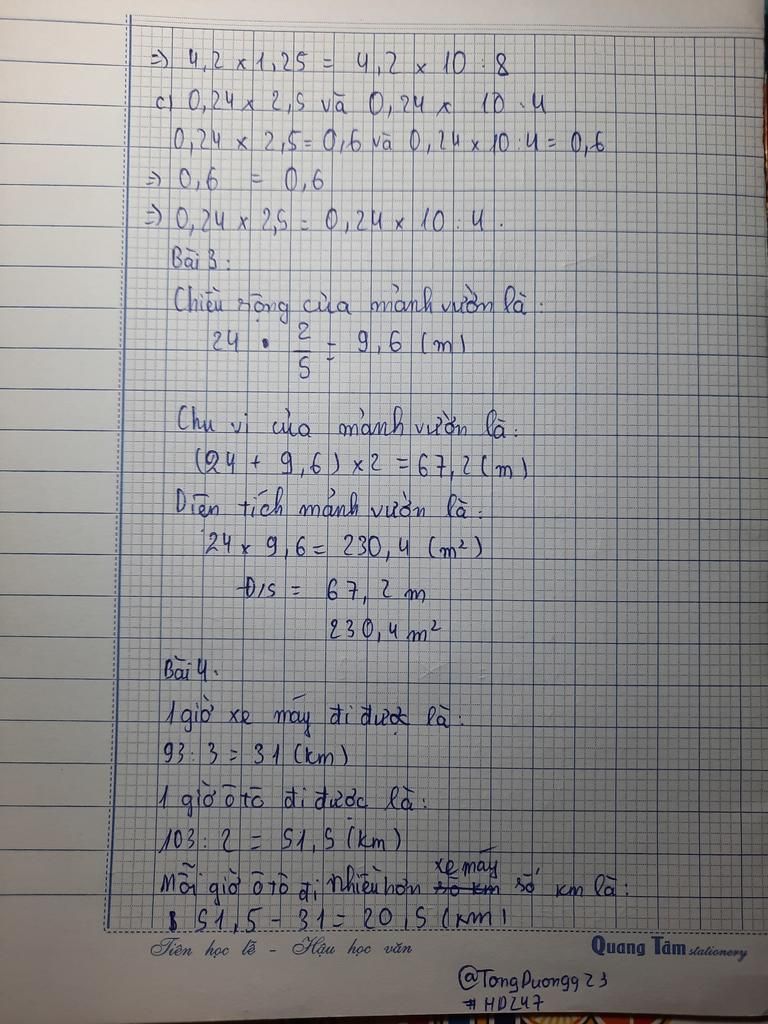 => 4,2 x 1,25 = 4,2 x 10 : 8
c) 0,24 x 2,5 và 0,24 x 10 : 4
0,24 x 2,5 = 0,6 và 0,24 x 10 : 4 = 0,6
=> 0,6 = 0,6
=> 0,24 x 2,5 = 0,24 x 10 : 4.
Bài 3:
Chiều rộng của mảnh vườn là:
24 . 2/5 = 9,6 (m)
Chu vi của mảnh vườn là:
(24 + 9,6) x 2 = 67,2 (m)
Diện tích mảnh vườn là:
24 x 9,6 = 230,4 (m²)
Đ/S = 67,2 m
230,4 m²
Bài 4.
1 giờ xe máy đi được là:
93 : 3 = 31 (km)
1 giờ ô tô đi được là:
103 : 2 = 51,5 (km)
Mỗi giờ ô tô đi nhiều hơn xe máy số km là:
51,5 - 31 = 20,5 (km)
Tiên học lễ - Hậu học văn
Quang Tâm stationery
@TongDuongg23
#HD247